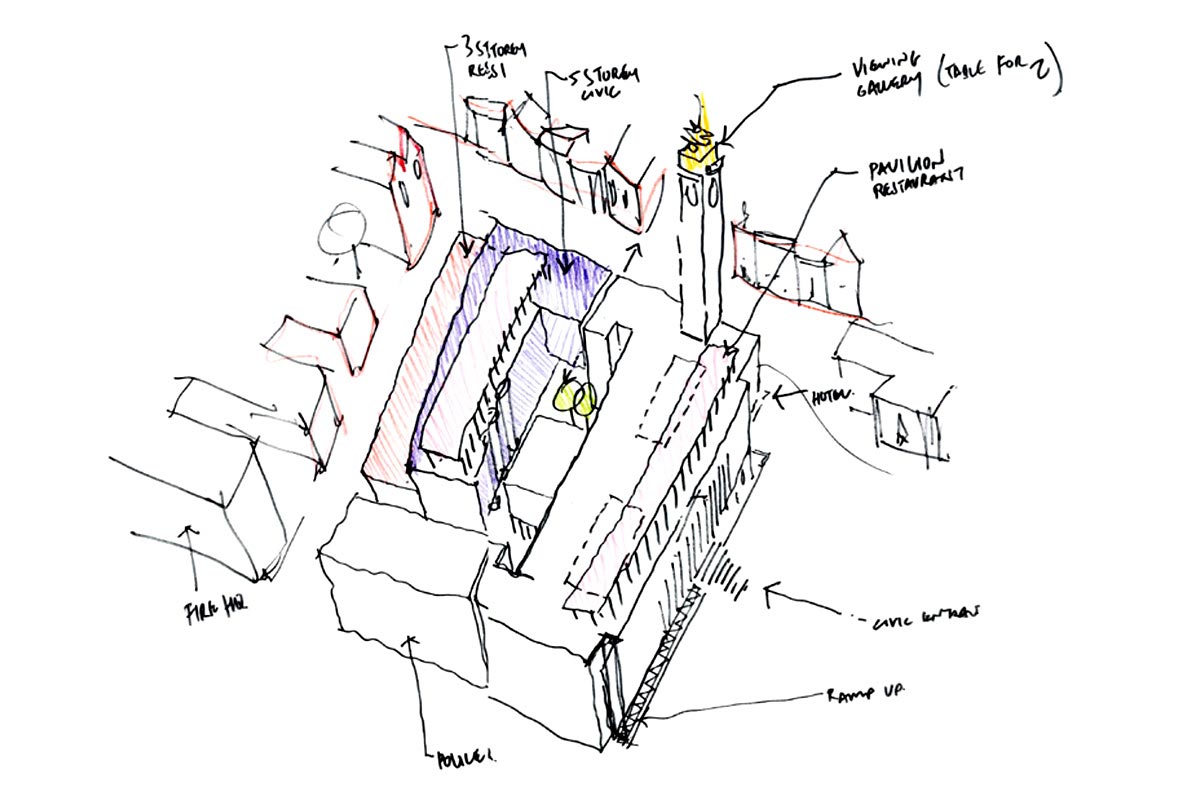 3 STOREY
RESI
5 STOREY
CIVIC
VIEWING
GALLERY (TABLE FOR 2)
PAVILION
RESTAURANT
HOTEL.
FIRE HQ
CIVIC ENTRAN
RAMP UP.
POLICE